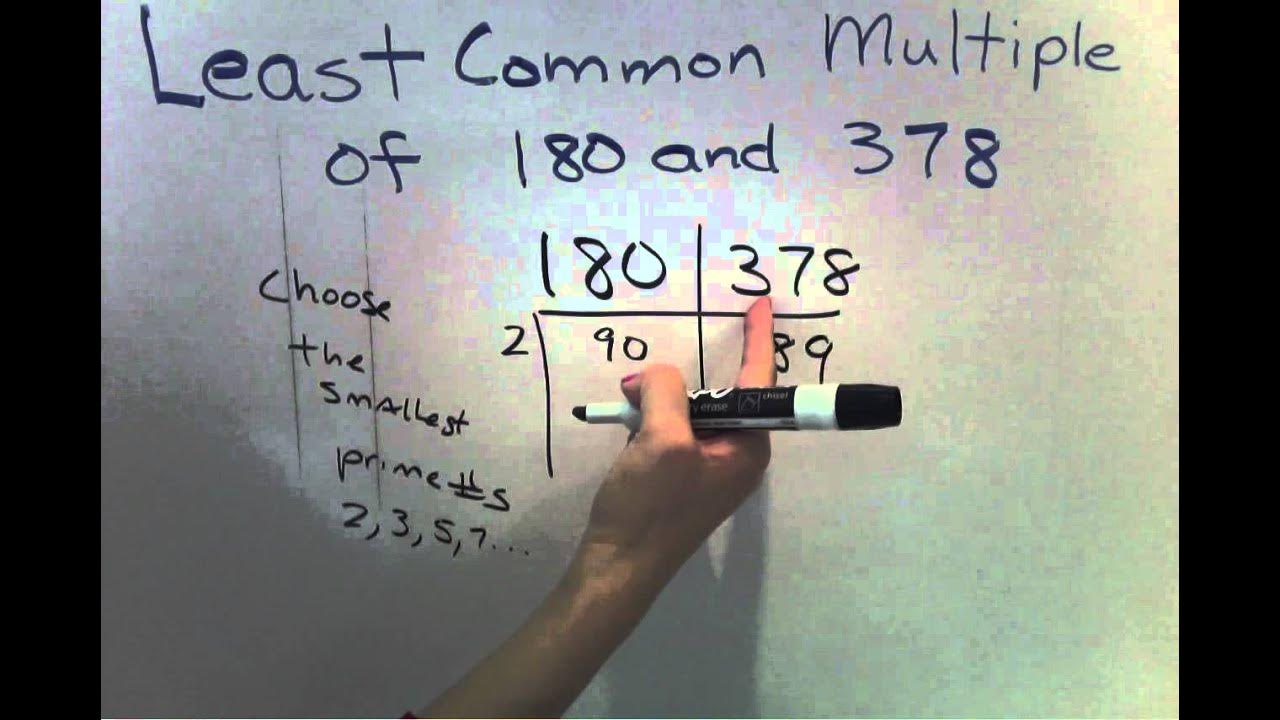 Least Common Multiple
of 180 and 378
180 378
2 90 89
Choose
the
smallest
prime #s
2, 3, 5, 7...
erase
chisel